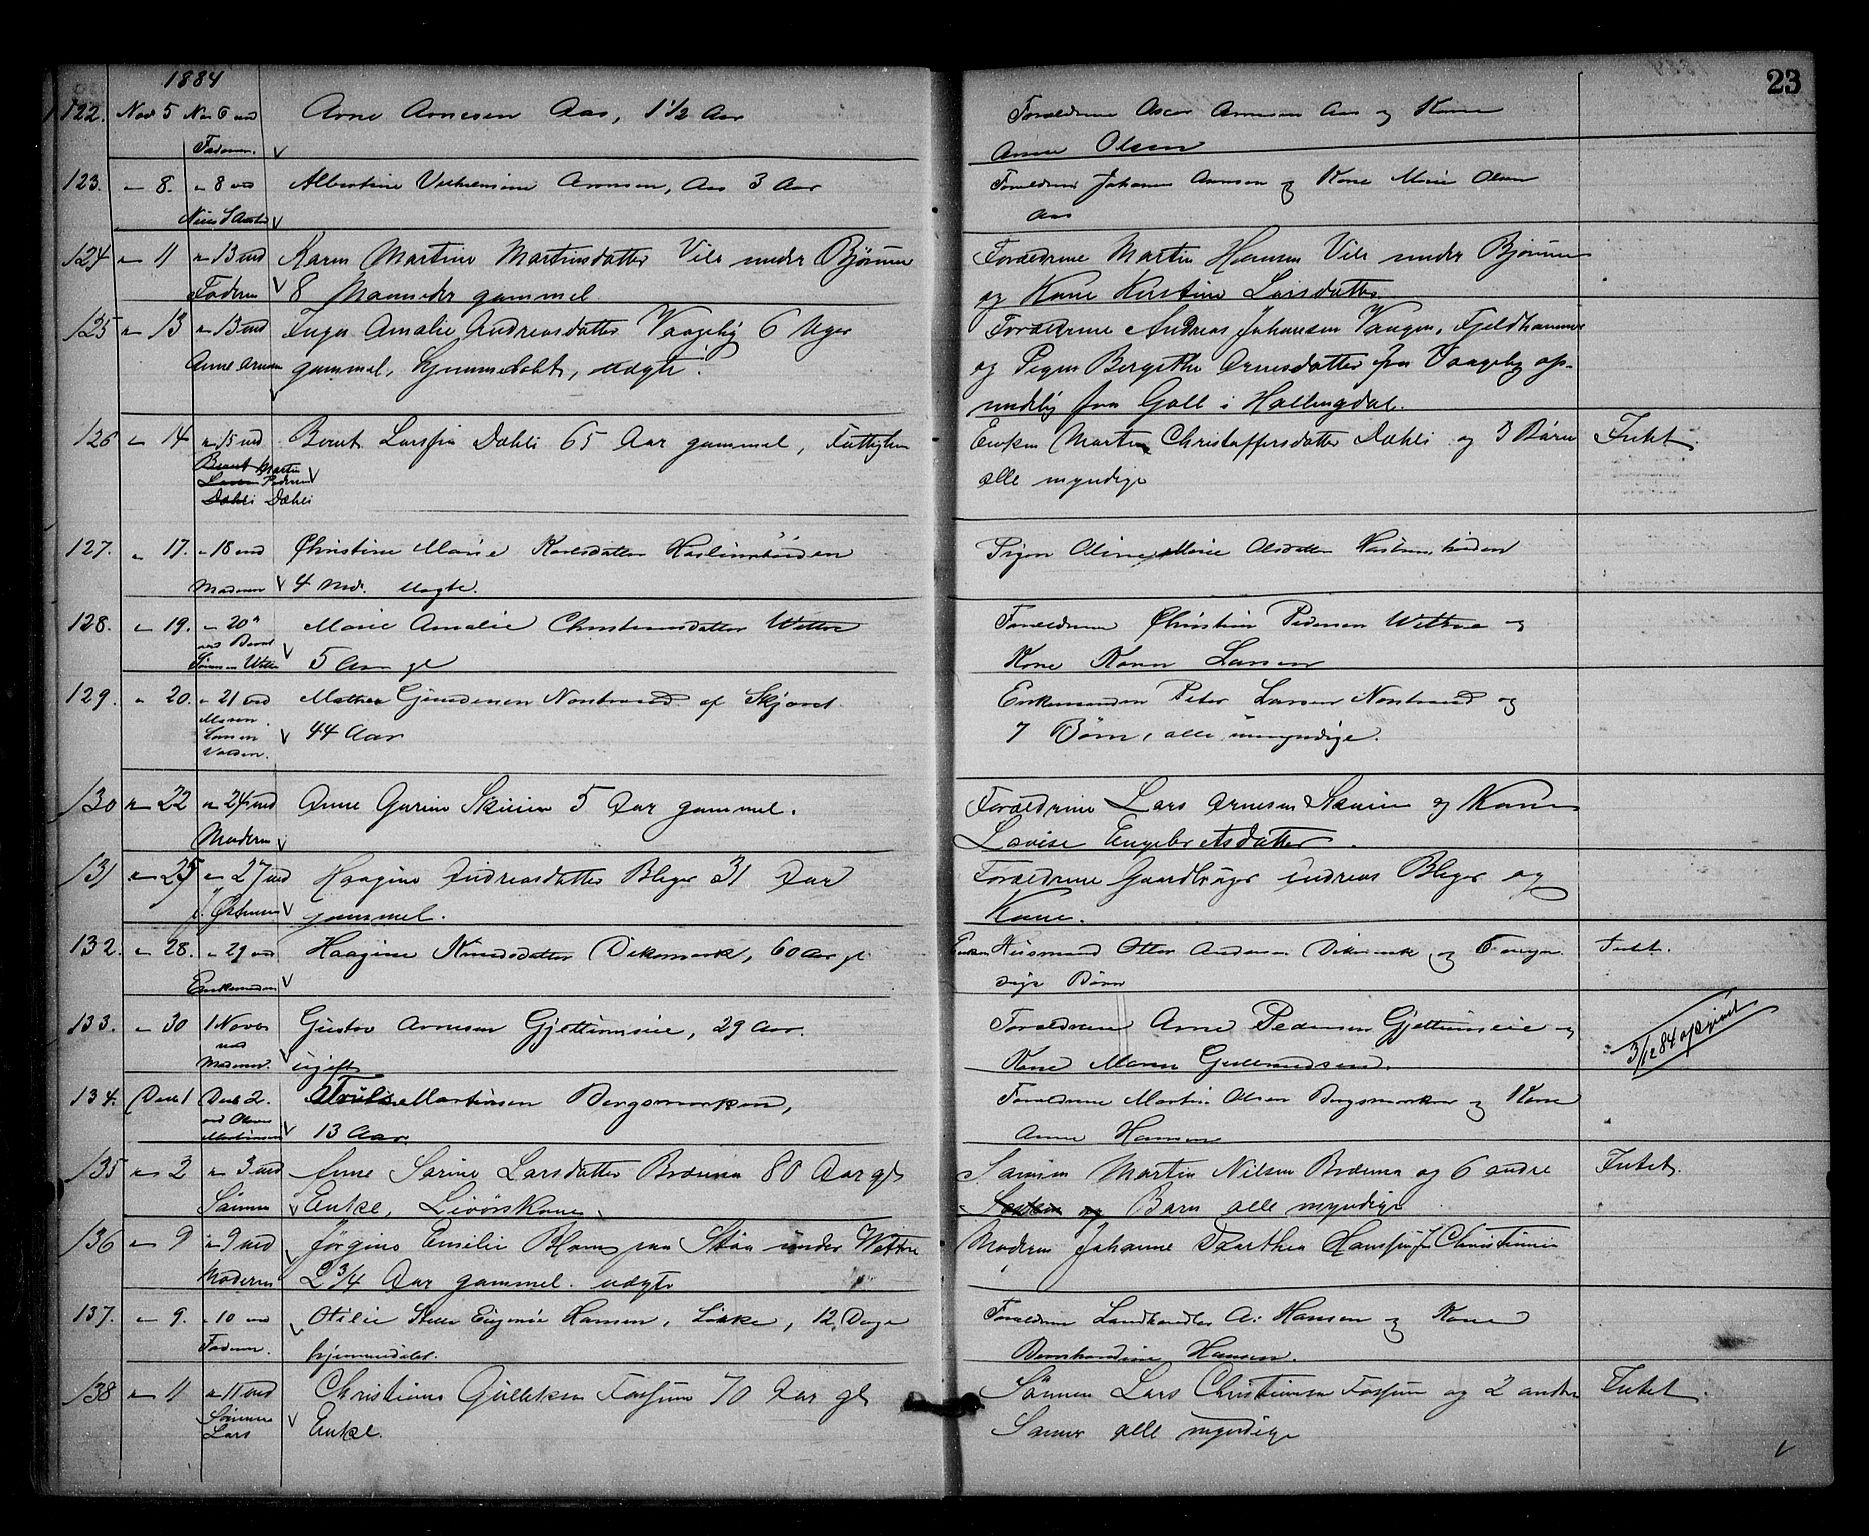 1884
23
122. Nov 5 Nov 6 ved Arne Arnesen Aas, 1 1/2 Aar Forældrene Oscar Arnesen Aas og Kone
Faderen. Anne Olsen
123. " 8. " 8 ved Albertine Vilhelmine Arnesen, Aas 3 Aar Forældrene Johannes Arnesen og Kone Marie Olsen
Aas
124 " 11 " 13 ved Karen Martine Martinsdatter Vile under Bjørum Forældrene Martin Hansen Vile under Bjørum
Faderen 8 Maaneder gammel og Kone Kirstine Larsdatter
125 " 13 " 13 ved Inga Amalie Andreasdatter Vaageby 6 Uger Forældrene Andreas Johansen Vangen, Fjeldhammer
Anne Arnesen gammel, hjemmedøbt, uægte. og Pigen Bergithe Arnesdatter fra Vaageby op-
rindelig fra Goll i Hallingdal.
126 " 14 " 15 ved Bernt Larssen Dæhli 65 Aar gammel, Fattiglem Enken Marthe Christoffersdatter Dæhli og 3 Børn Intet.
Bernt Martin alle myndige
Larsen Pedersen
Dæhli Dæhli
127. " 17. " 18 ved Christine Marie Karlsdatter 
Moderen 4 Mdr. Uægte. Pigen Oline Marie Olsdatter
128. " 19. " 20 " Marie Amalie Christiansdatter Wettre Forældrene Christian Pedersen Wettre og
ved Bernt
Sørensen Wettre 5 Aar gl Kone Karen Larsen
129. " 20. " 21 ved Mathea Gundersen Nordstrand af Skjøret. Enkemanden Peter Larsen Nordstrand og
Maren
Larsen 44 Aar 7 Børn, alle umyndige.
130 " 22 " 24 ved Anne Gurine Skuien 5 Aar gammel. Forældrene Lars Arnesen Skuien og Kone
Moderen Lovise Engebretsdatter.
131 " 25 " 27 ved Haagine Andreasdatter Bleger 31 Aar Forældrene Gaardbruger Andreas Bleger og
gammel. Kone.
132. " 28. " 29 ved Haagine Knudsdatter Dikemark, 60 Aar gl. Enken Husmand Otter Andersen Dikemark og 5 umyn- Intet.
Enkemanden dige Børn
133. " 30 1 Novbr Gustav Arnesen Gjettumseie, 29 Aar. Forældrene Arne Pedersen Gjettumseie og
ved
Moderen. ugift Kone Maren Gulbrandsen. 3/12 84 opgivet
134. Decb 1 Decb 2. Truls Martinsen Bergsmarken, Forældrene Martin Olsen Bergsmarken og Kone
ved
Martinsen 13 Aar. Anne Hansen
135 " 2 " 3 ved Anne Sørine Larsdatter Brænna 80 Aar gl Sønnen Martin Nilsen Brænna og 6 andre Intet.
Sønnen Enke, Livørskone. og Børn alle myndige
136 " 9 " 9 ved Jørgine Emilie Blom paa Støa under Wettre Moderen Johanne Dorthea Hanssen fra Christiania
Moderen 2 3/4 Aar gammel. uægte
137. " 9. " 10 ved Otilie Stella Eugenie Hansen, Løkke, 12 Dage Forældrene Landhandler A. Hansen og Kone
Faderen. hjemmedøbt. Bernhardine Hansen.
138 " 11 " 11 ved Christiane Gulliksen Fossum 70 Aar gl Sønnen Lars Christiansen Fossum og 2 andre Intet.
Sønnen
Lars Enke. Sønner alle myndige